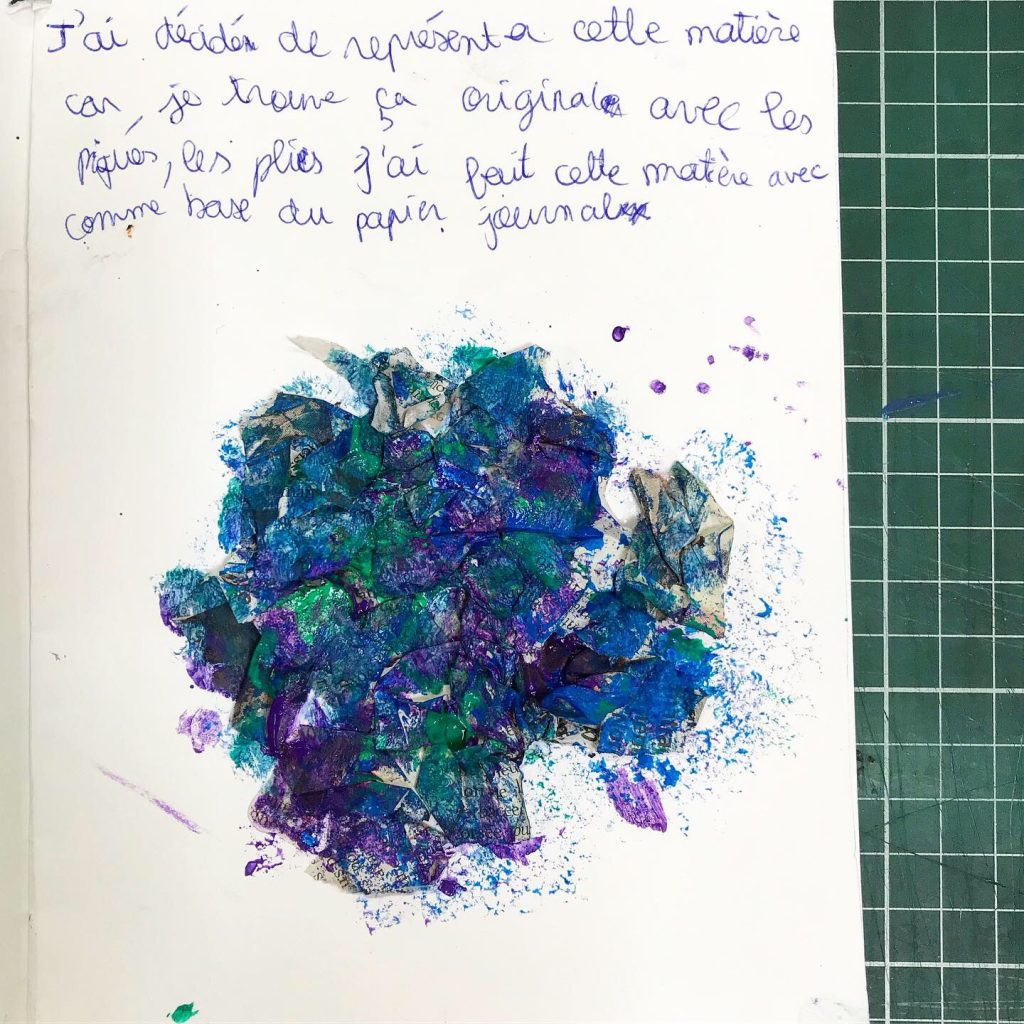 J'ai décidér de représenter cette matière
car je trouve ça original avec les
piqués, les pliés j'ai fait cette matière avec
comme base du papier journal